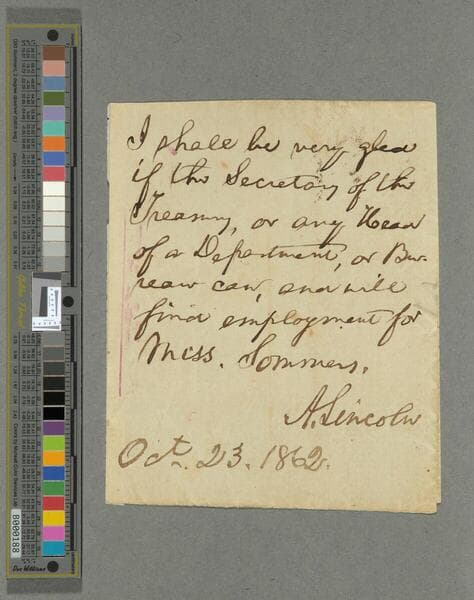 I shall be very glad
if the Secretary of the
Treasury, or any Head
of a Department, or Bu-
reau can, and will
find employment for
Miss. Sommers.
A. Lincoln
Oct. 23. 1862.
B000188